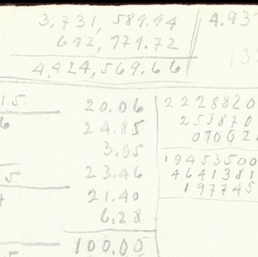 3,731,589.94
692,979.72
4,424,569.66
4.937
15
20.06
24.85
3.95
23.46
5
21.40
6.28
100.00
2228820
253870
19453500
4641381
197745